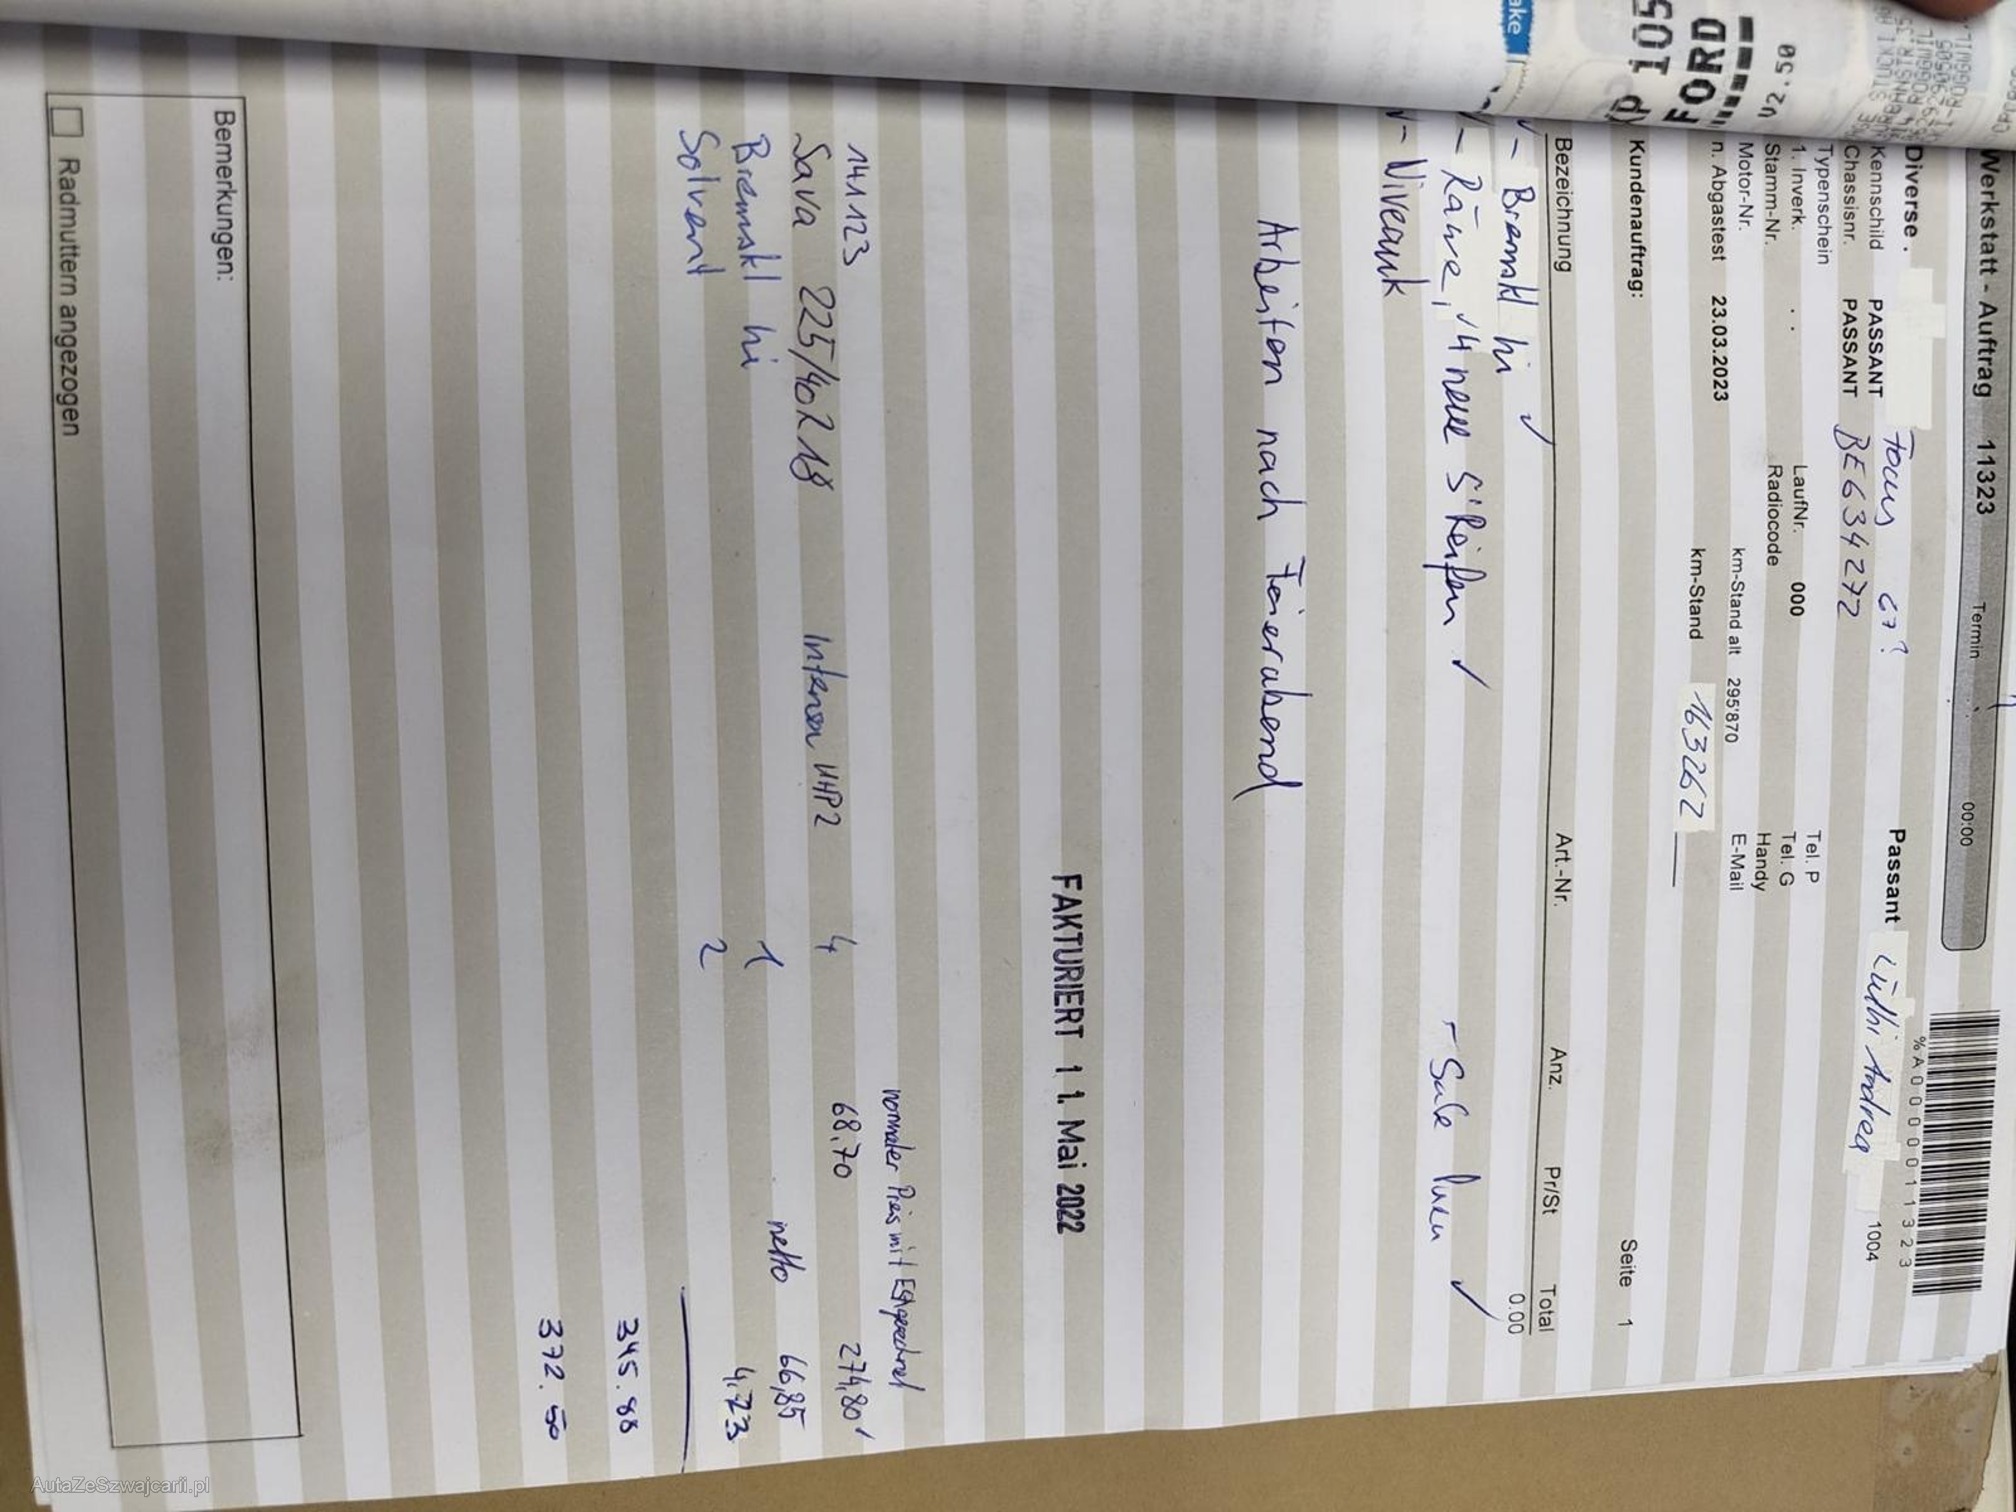 Werkstatt - Auftrag 11323 Termin 00:00
%A0000011323
Diverse . Passant Lüthi Andrea 1004
Focus
Kennschild PASSANT
Chassisnr. PASSANT BE634272
Typenschein Tel. P
1. Inverk. . . LaufNr. 000 Tel. G
Stamm-Nr. Radiocode Handy
Motor-Nr. km-Stand alt 295'870 E-Mail
n. Abgastest 23.03.2023 km-Stand 163262
Kundenauftrag: Seite 1
Bezeichnung Art.-Nr. Anz. Pr/St Total
0.00
- Bremskl hi ✓
- Räwe, 4 neue S'Reifen ✓ - Sale ✓
- Niveauk
Arbeiten nach Feierabend
FAKTURIERT 1 1. Mai 2022
normaler Preis mit
141123
Sava 225/40Z18 Intensa UHP2 4 68.70 274,80
Bremskl hi 1 netto 66,85
Solvent 2 4.23
345.88
372.50
Bemerkungen:
Radmuttern angezogen
ake
FORD
105
v2.50
AutaZeSzwajcarii.pl